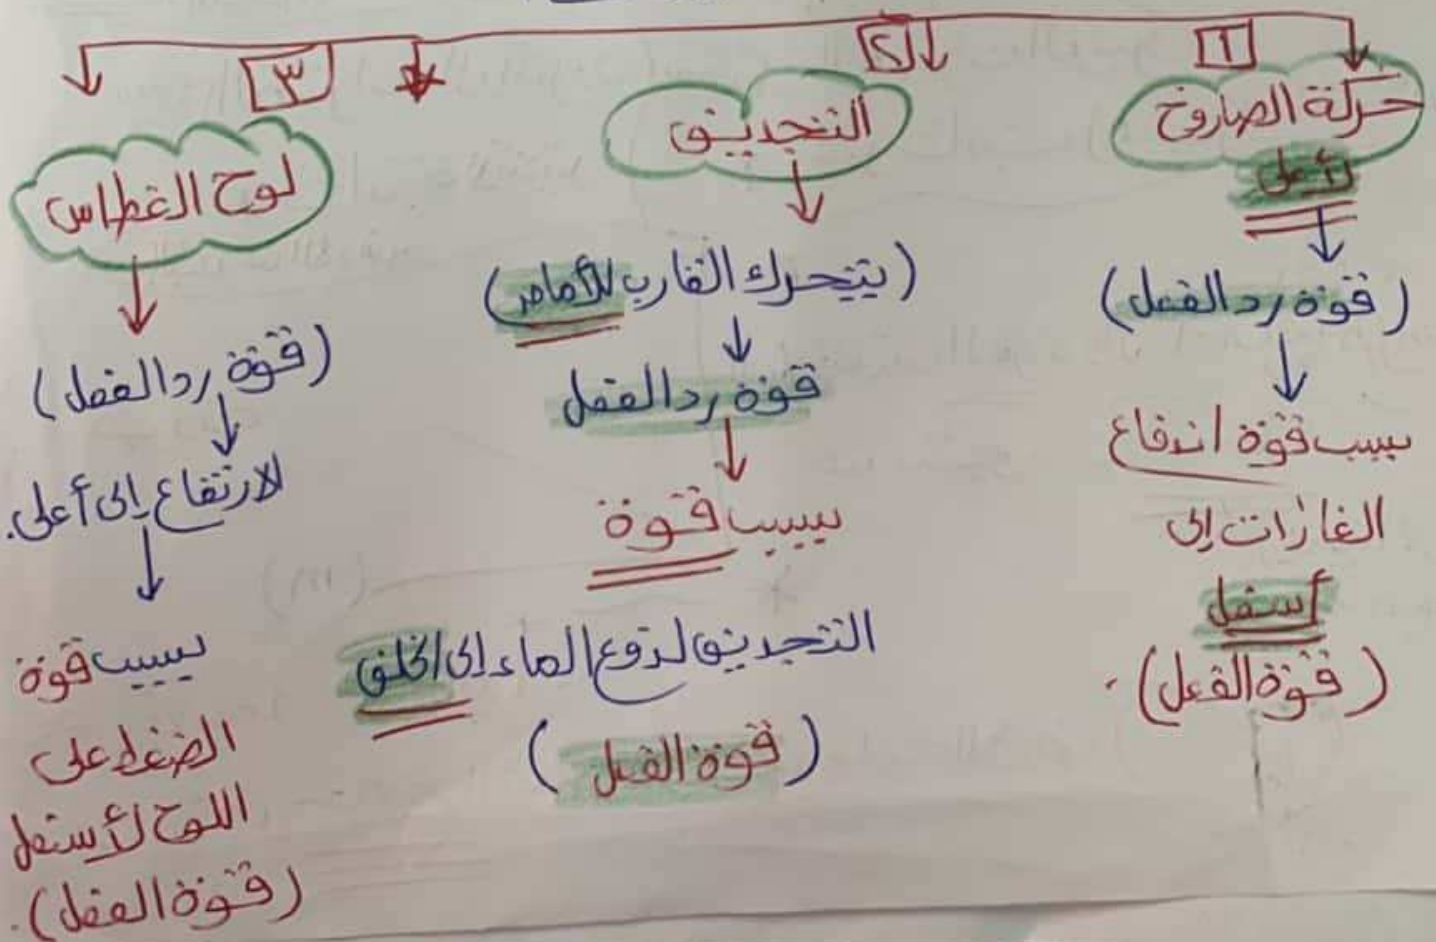 ١
حركة الصاروخ
لأعلى
(قوة رد الفعل)
بسبب قوة اندفاع
الغازات إلى
أسفل
(قوة الفعل).
٢
التجديف
(يتحرك القارب للأمام)
قوة رد الفعل
بسبب قوة
التجديف لدفع الماء إلى الخلف
(قوة الفعل)
٣
لوح الغطاس
(قوة رد الفعل)
الارتفاع إلى أعلى.
بسبب قوة
الضغط على
اللوح لأسفل
(قوة الفعل).